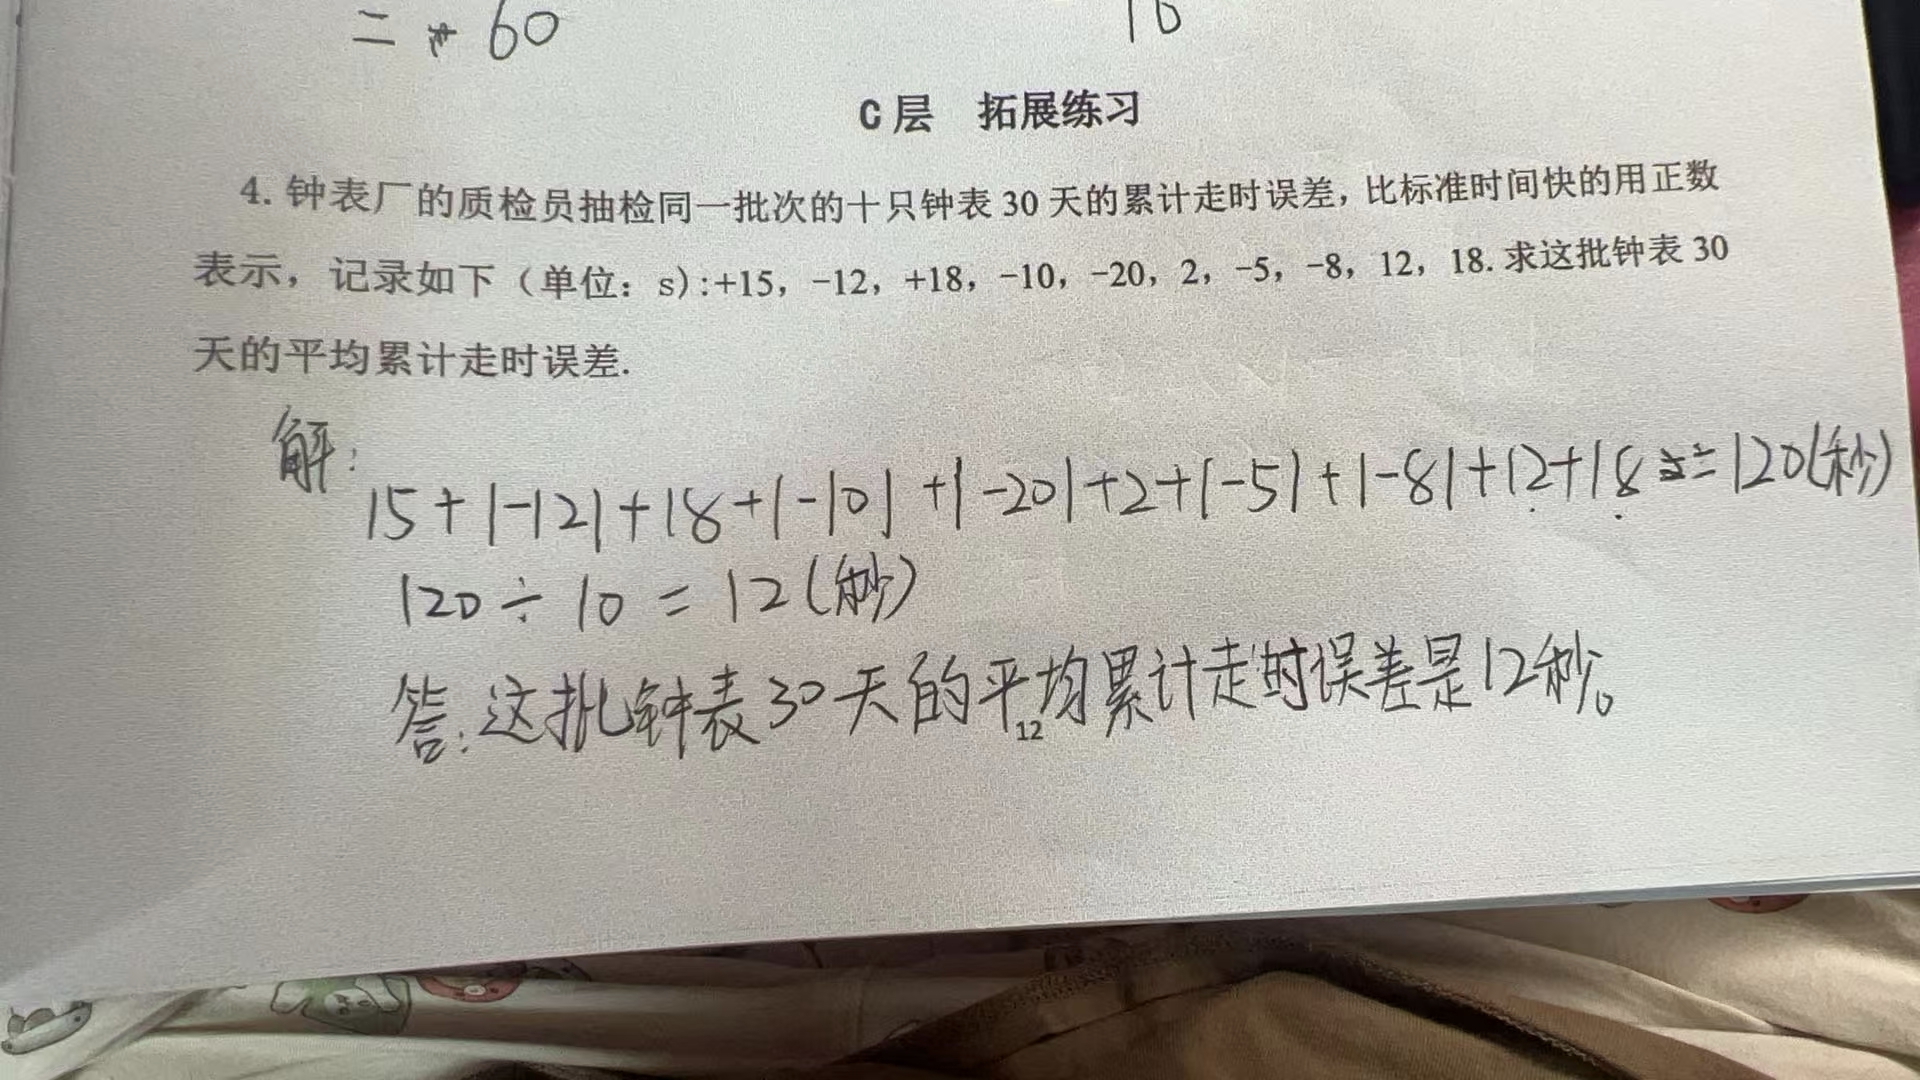 = -60
10
C层 拓展练习
4. 钟表厂的质检员抽检同一批次的十只钟表 30 天的累计走时误差，比标准时间快的用正数
表示，记录如下（单位：s）:+15，-12，+18，-10，-20，2，-5，-8，12，18. 求这批钟表 30
天的平均累计走时误差.
解：
15+|-12|+18+|-10|+|-20|+2+|-5|+|-8|+12+18=120(秒)
120÷10=12(秒)
答：这批钟表30天的平均累计走时误差是12秒。
12